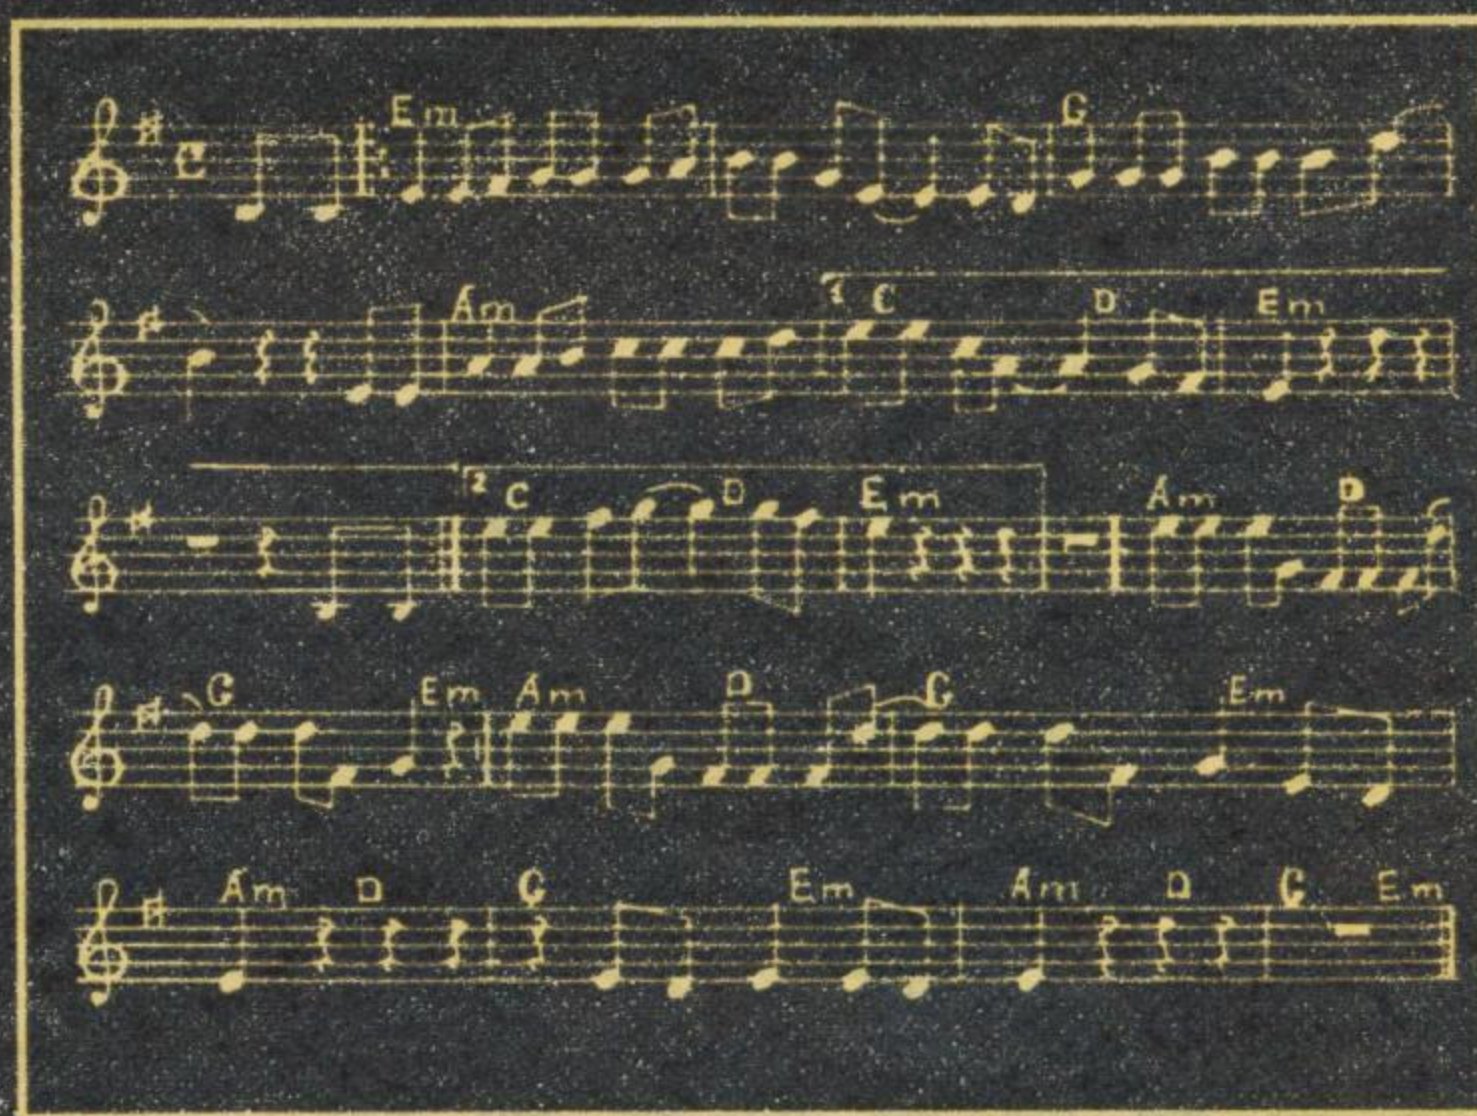 C Em G
Am 1 C D Em
2 C D Em Am D
G Em Am D G Em
Am D G Em Am D G Em